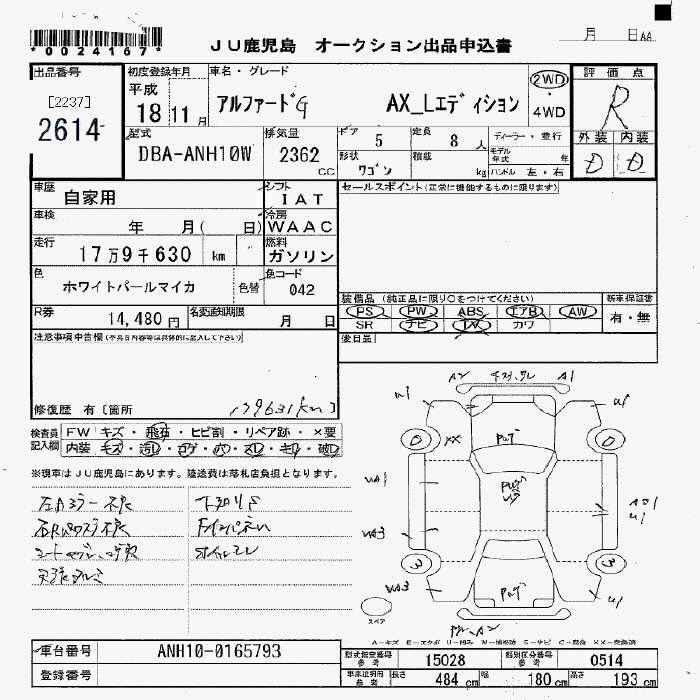 *0024167*
JU鹿児島 オークション出品申込書
月 日AA
出品番号
[2237]
2614
初度登録年月
平成
18 11月
車名・グレード
アルファードG AX_Lエディション
2WD
・
4WD
評価点
R
外装 内装
D D
型式
DBA-ANH10W
排気量
2362 CC
ドア 5
定員 8 人
形状 ワゴン
積載 kg
ディーラー・並行
モデル年式 年
ハンドル 左・右
車歴 自家用
シフト IAT
セールスポイント(正常に機能するものに限ります)
車検 年 月( 日)
冷房 WAAC
走行 17万9千630 km
燃料 ガソリン
色 ホワイトパールマイカ
色替
色コード 042
R券 14,480円
名変通知期限 月 日
装備品(純正品に限り○をつけてください)
PS PW ABS エアB AW
SR ナビ TV カワ
新車保証書
有・無
後日品
注意事項申告欄(不具合内容等は具体的に記入して下さい)
修復歴 有〔箇所
179631km〕
検査員記入欄
FW キズ・飛石・ヒビ割・リペア跡・×要
内装・キズ・汚レ・コゲ・穴・スレ・キレ・破レ
※現車はJU鹿児島にあります。陸送費は落札店負担となります。
A2 A1
U1 U1
XX
UA1
UA3
UA3
U1
U1
0 0
3 3
スペア
A-キズ E-エクボ U-凹み W-補修跡 S-サビ C-腐食 XX-交換済
車台番号 ANH10-0165793
登録番号
型式指定番号 参考 15028
類別区分番号 参考 0514
車検証明用 参考 長さ 484 cm 幅 180 cm 高さ 193 cm